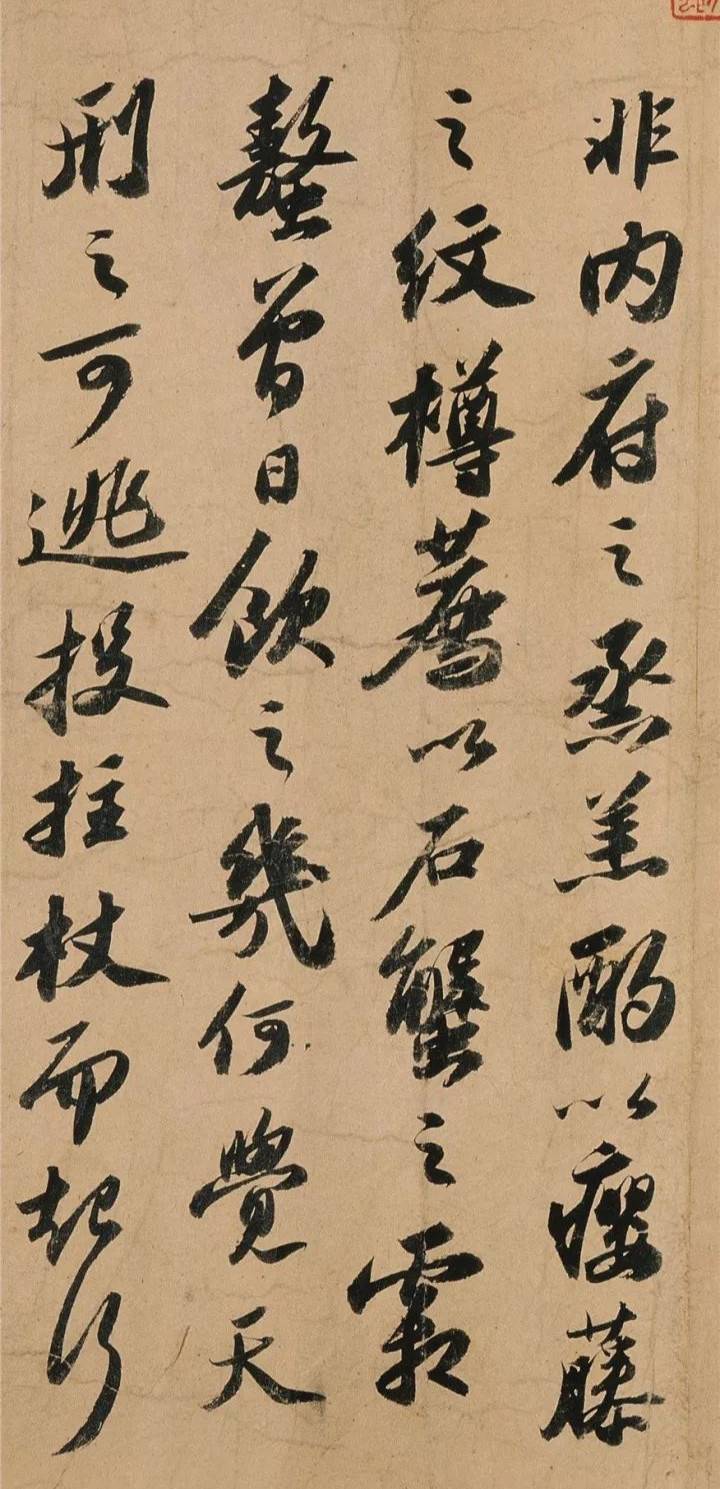 非內府之烝羔酌以癭藤
之紋樽薦以石蟹之霜
螯曾日飲之幾何覺天
刑之可逃投拄杖而起行